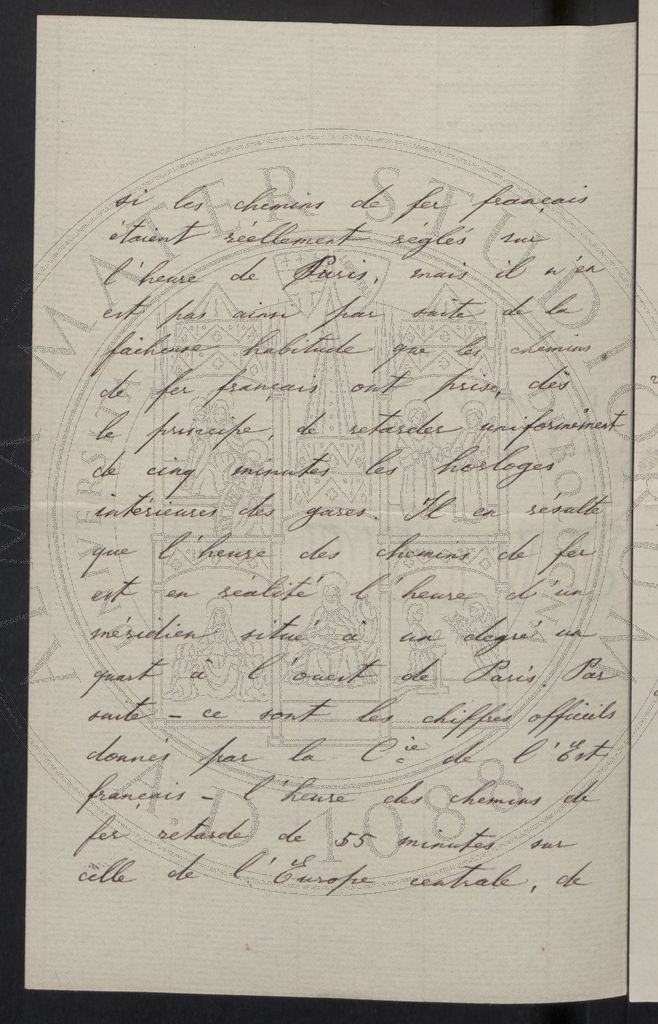 si les chemins de fer français
étaient réellement réglés sur
l'heure de Paris, mais il n'en
est pas ainsi par suite de la
fâcheuse habitude que les chemins
de fer français ont prise, dès
le principe, de retarder uniformément
de cinq minutes les horloges
intérieures des gares. Il en résulte
que l'heure des chemins de fer
est en réalité l'heure d'un
méridien situé à un degré un
quart à l'ouest de Paris. Par
suite – ce sont les chiffres officiels
donnés par la Cie de l'Est
français – l'heure des chemins de
fer retarde de 55 minutes sur
celle de l'Europe centrale, de
ALMA MATER STUDIORUM
A.D. 1088